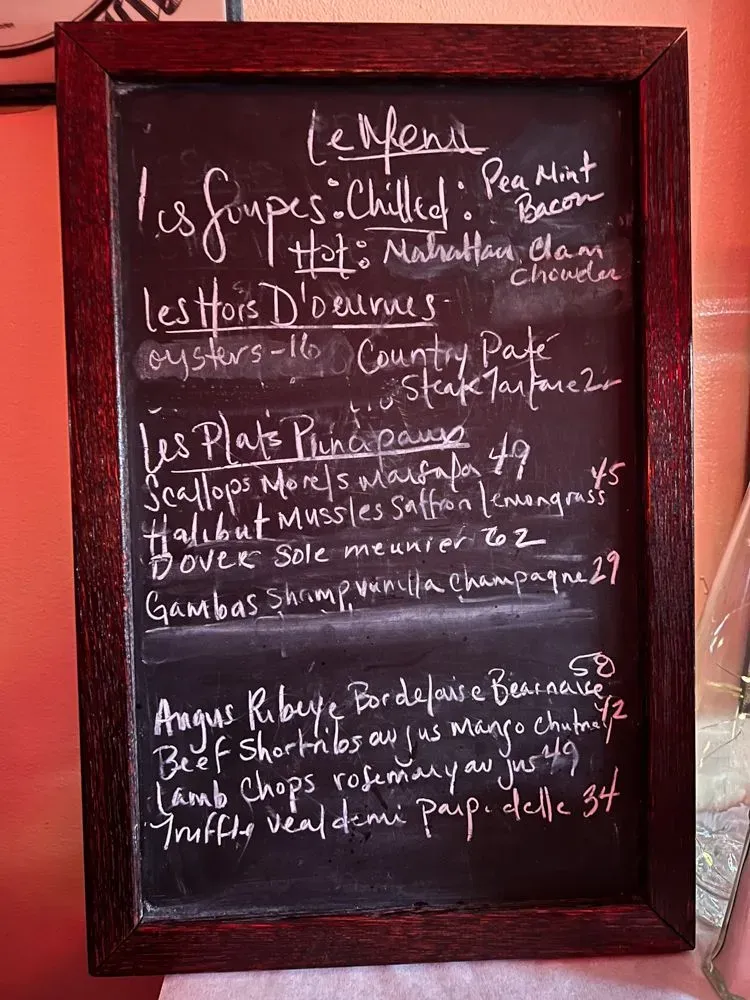 Le Menu
Les Soupes: Chilled: Pea Mint
Bacon
Hot: Mahattan Clam
Chowder
Les Hors D'oeurves
oysters-16 Country Paté
Steak Tartare
Les Plats Principaux
Scallops Morels 49
Halibut Mussles Saffron lemongrass 45
Dover Sole meunier 62
Gambas Shrimp, vanilla champagne 29
Angus Ribeye Bordelaise Bearnaise 58
Beef Shortribs au jus mango chutney 42
Lamb Chops rosemary au jus 49
Truffle veal demi papp.delle 34